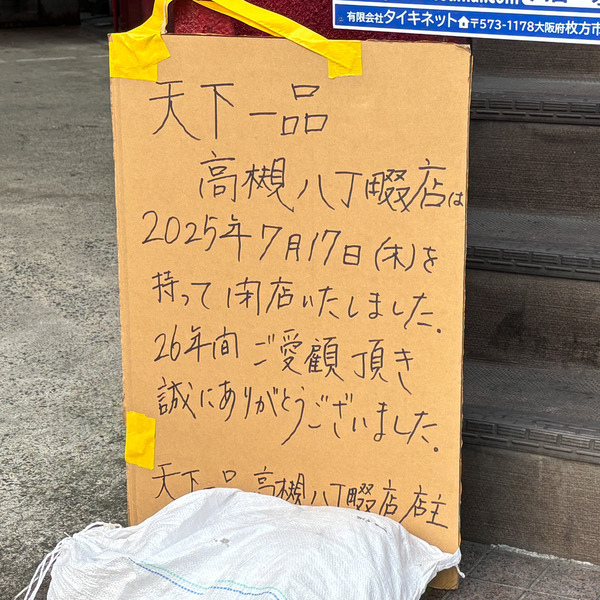 有限会社タイキネット 〒573-1178大阪府枚方市
天下一品
高槻八丁畷店は
2025年7月17日(木)を
持って閉店いたしました。
26年間 ご愛顧頂き
誠にありがとうございました。
天下一品 高槻八丁畷店店主